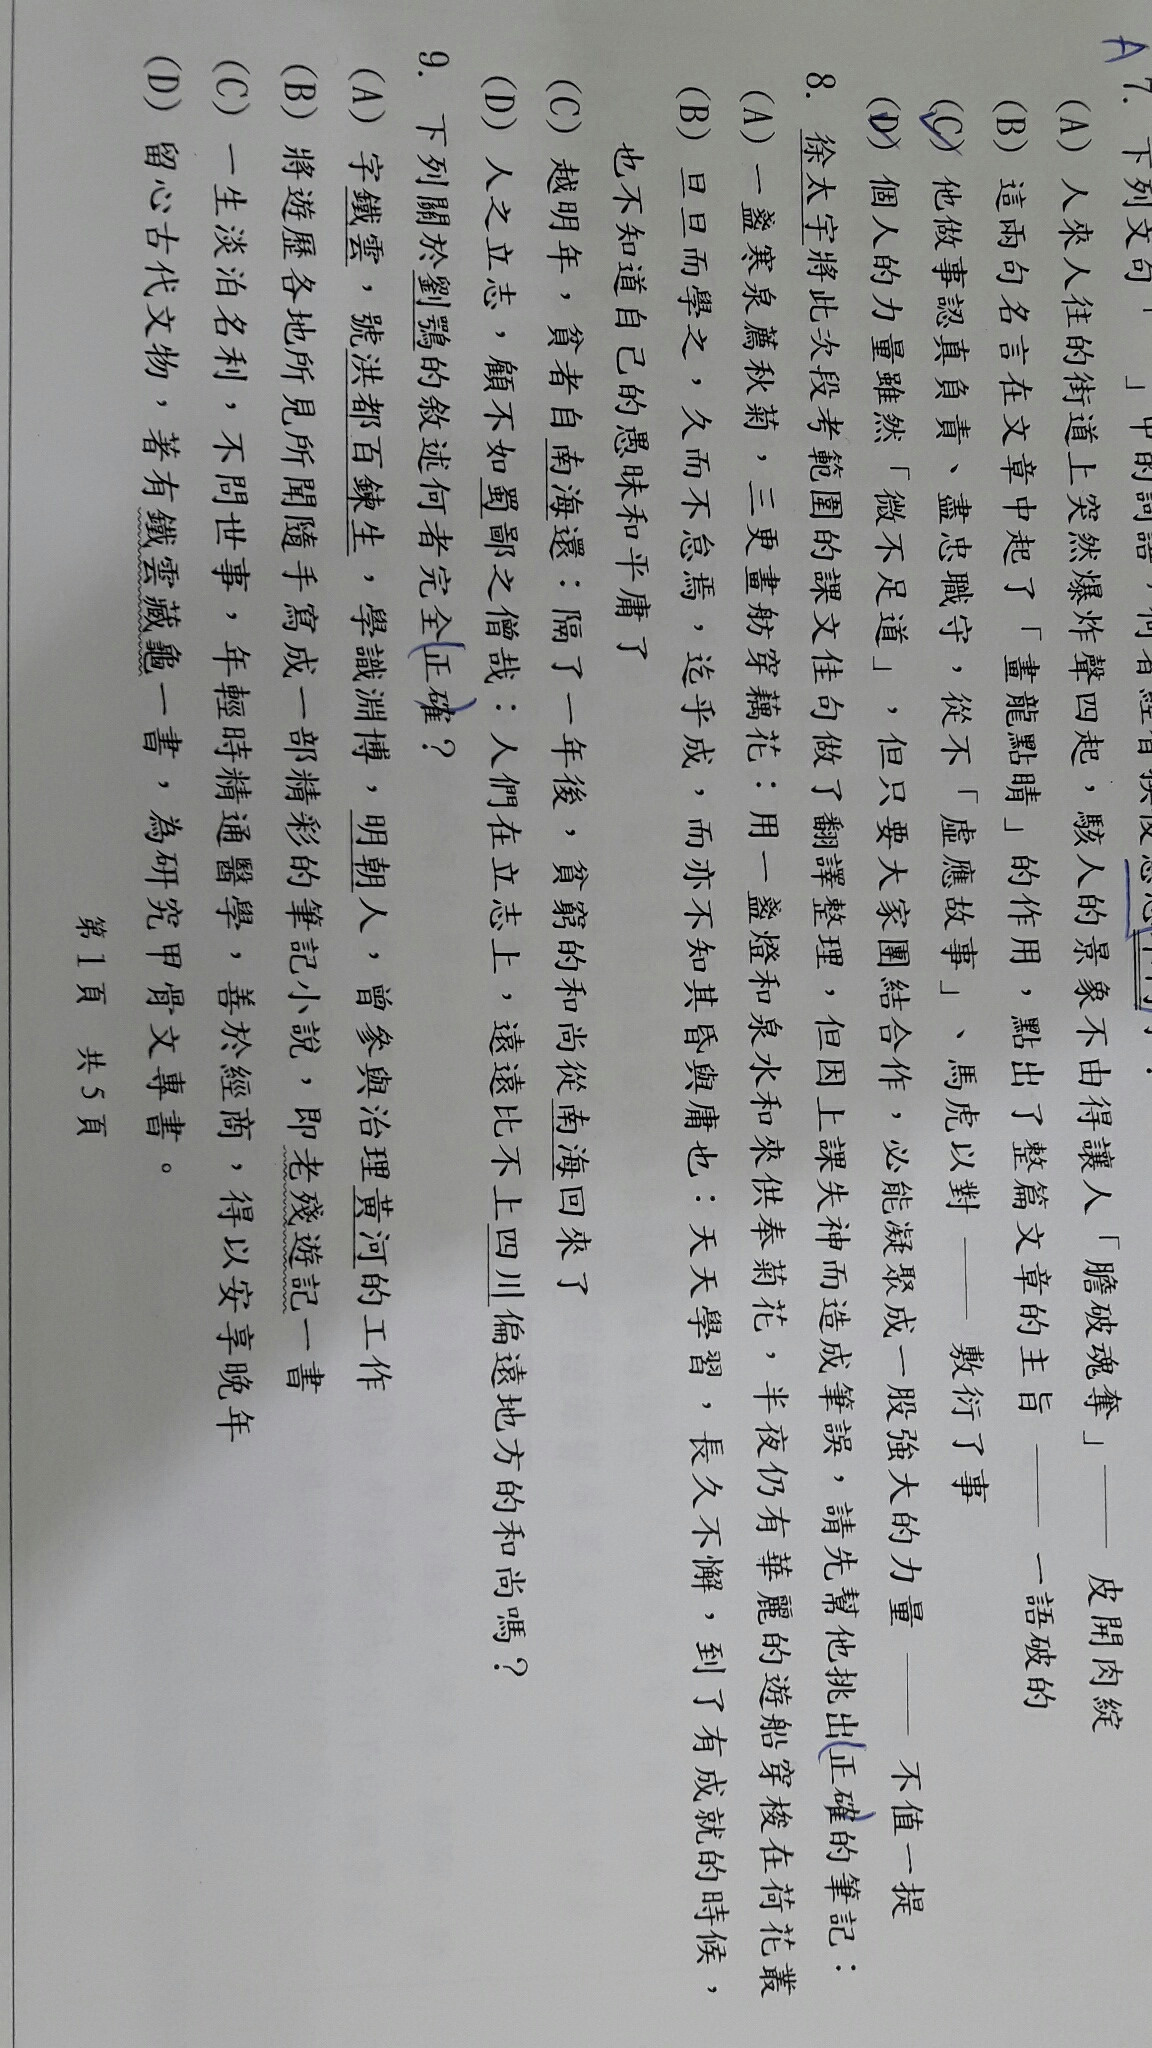 A
7. 下列文句「 」中的詞語，何者經替換後意思
(A) 人來人往的街道上突然爆炸聲四起，駭人的景象不由得讓人「膽破魂奪」—— 皮開肉綻
(B) 這兩句名言在文章中起了「畫龍點睛」的作用，點出了整篇文章的主旨 —— 一語破的
(C) 他做事認真負責、盡忠職守，從不「虛應故事」、馬虎以對 —— 敷衍了事
(D) 個人的力量雖然「微不足道」，但只要大家團結合作，必能凝聚成一股強大的力量 —— 不值一提
8. 徐太宇將此次段考範圍的課文佳句做了翻譯整理，但因上課失神而造成筆誤，請先幫他挑出正確的筆記：
(A) 一盞寒泉薦秋菊，三更畫舫穿藕花：用一盞燈和泉水和來供奉菊花，半夜仍有華麗的遊船穿梭在荷花叢
(B) 旦旦而學之，久而不怠焉，迄乎成，而亦不知其昏與庸也：天天學習，長久不懈，到了有成就的時候，
也不知道自己的愚昧和平庸了
(C) 越明年，貧者自南海還：隔了一年後，貧窮的和尚從南海回來了
(D) 人之立志，顧不如蜀鄙之僧哉：人們在立志上，遠遠比不上四川偏遠地方的和尚嗎？
9. 下列關於劉鶚的敘述何者完全正確？
(A) 字鐵雲，號洪都百鍊生，學識淵博，明朝人，曾參與治理黃河的工作
(B) 將遊歷各地所見所聞隨手寫成一部精彩的筆記小說，即老殘遊記一書
(C) 一生淡泊名利，不問世事，年輕時精通醫學，善於經商，得以安享晚年
(D) 留心古代文物，著有鐵雲藏龜一書，為研究甲骨文專書。
第1頁 共5頁